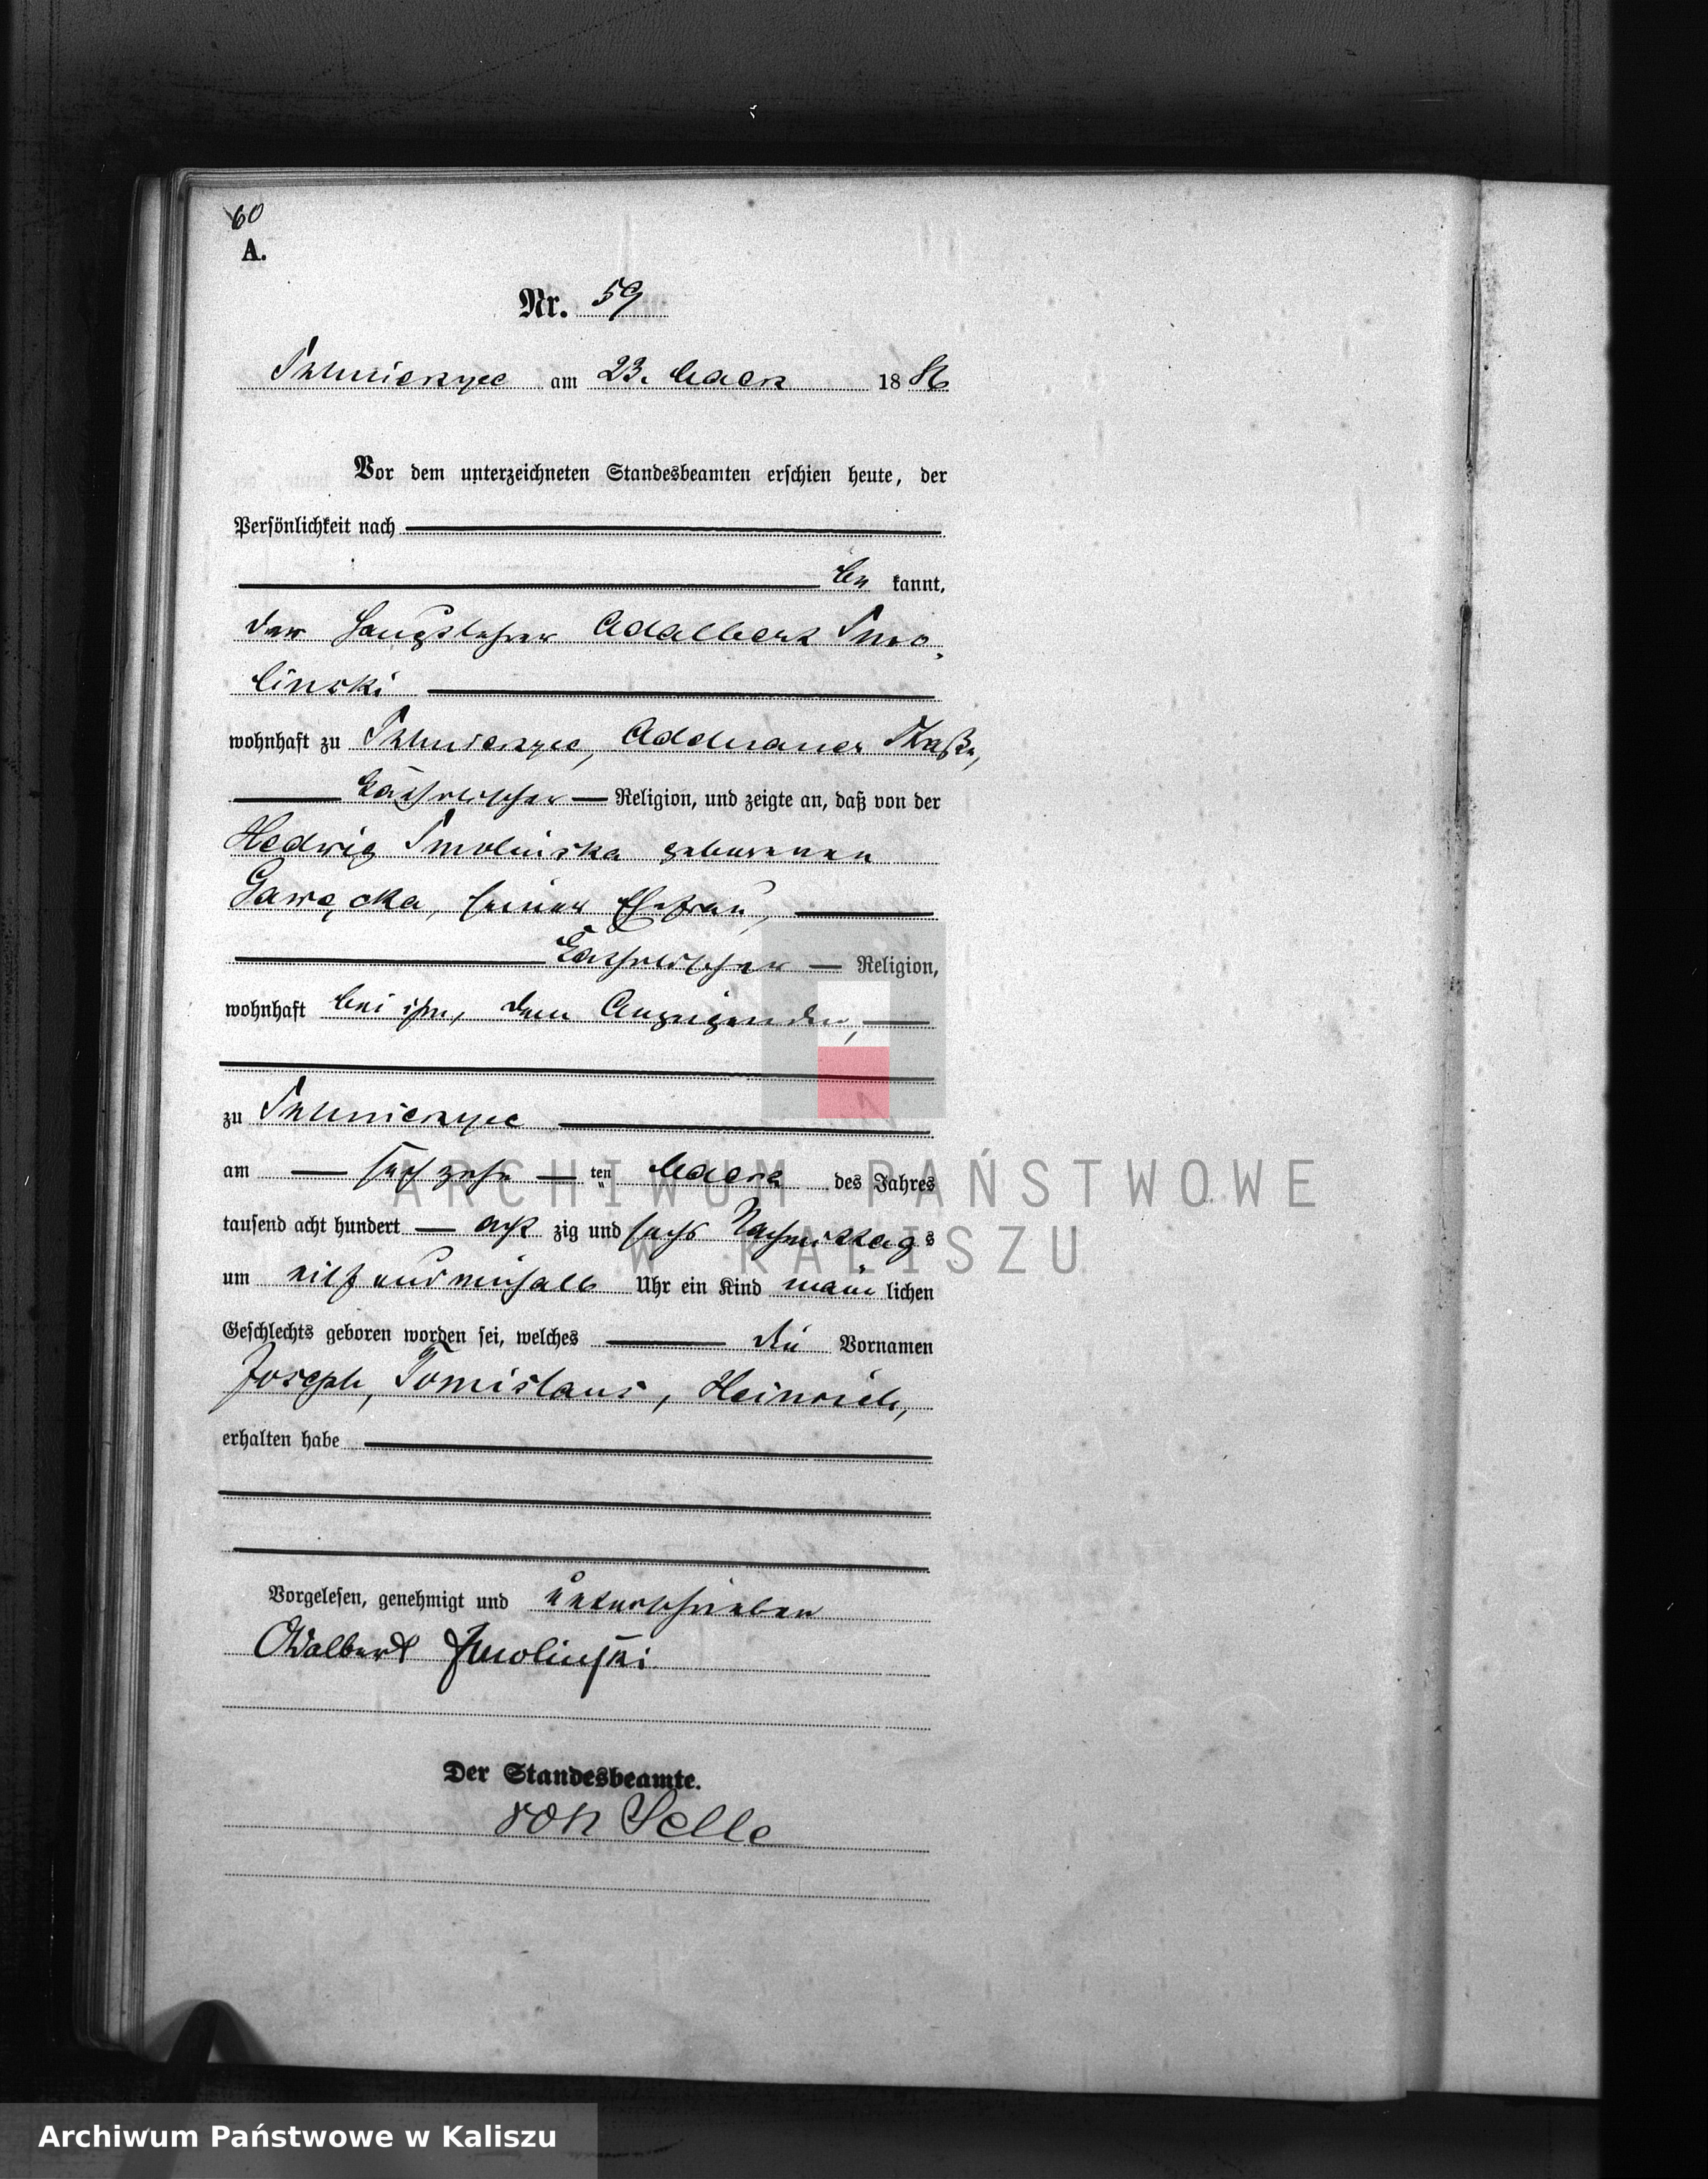 60
A.
Nr. 59
Skalmierzyce am 23. Maerz 1886
Vor dem unterzeichneten Standesbeamten erschien heute, der
Persönlichkeit nach
be kannt,
der Hauptlehrer Adalbert Smo-
linski
wohnhaft zu Skalmierzyce, Straße,
katholischer Religion, und zeigte an, daß von der
Hedwig Smolinska geborenen
Gawęcka, seiner Ehefrau,
katholischer Religion,
wohnhaft bei ihm, dem Anzeigenden,
zu Skalmierzyce
am sechzehn ten Maerz des Jahres
tausend acht hundert acht zig und sechs Nachmittags
um Uhr ein Kind männ lichen
Geschlechts geboren worden sei, welches die Vornamen
Joseph, Tomislaus, Heinrich,
erhalten habe
Vorgelesen, genehmigt und unterschrieben
Adalbert Smolinski
Der Standesbeamte.
von Selle
ARCHIWUM PAŃSTWOWE
W KALISZU
Archiwum Państwowe w Kaliszu